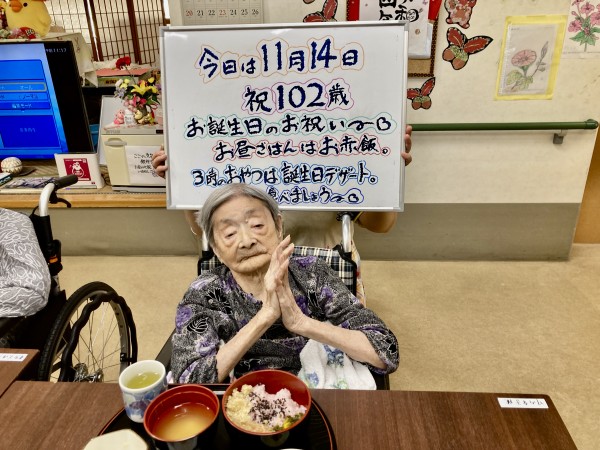 今日は11月14日
祝102歳
お誕生日のお祝い〜
お昼ごはんはお赤飯。
3時のおやつは誕生日デザート。
食べましょう〜